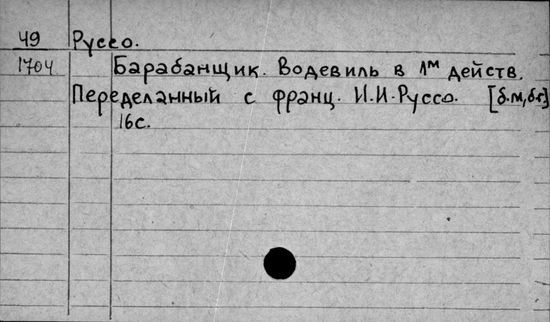 49 Руссо.
1704 Барабанщик. Водевиль в 1м действ.
Переделанный с франц. И.И.Руссо. [б.м,б.г]
16с.